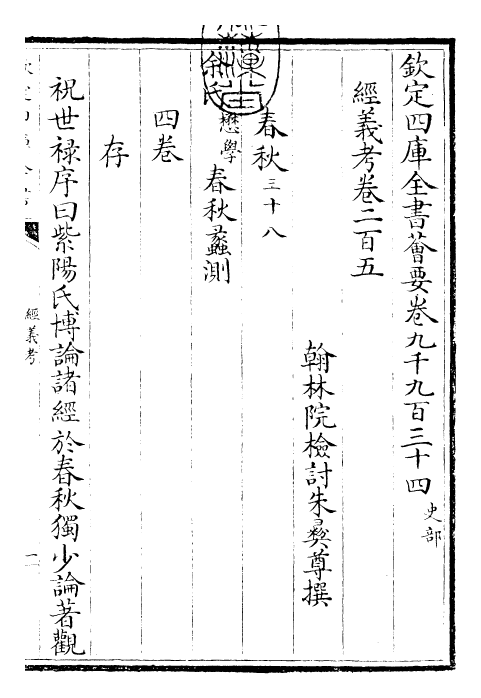 欽定四庫全書薈要卷九千九百三十四 史部
經義考卷二百五
翰林院檢討朱彝尊撰
春秋三十八
余氏懋學春秋蠡測
四卷
存
祝世禄序曰紫陽氏博論諸經於春秋獨少論著觀
經義考
一